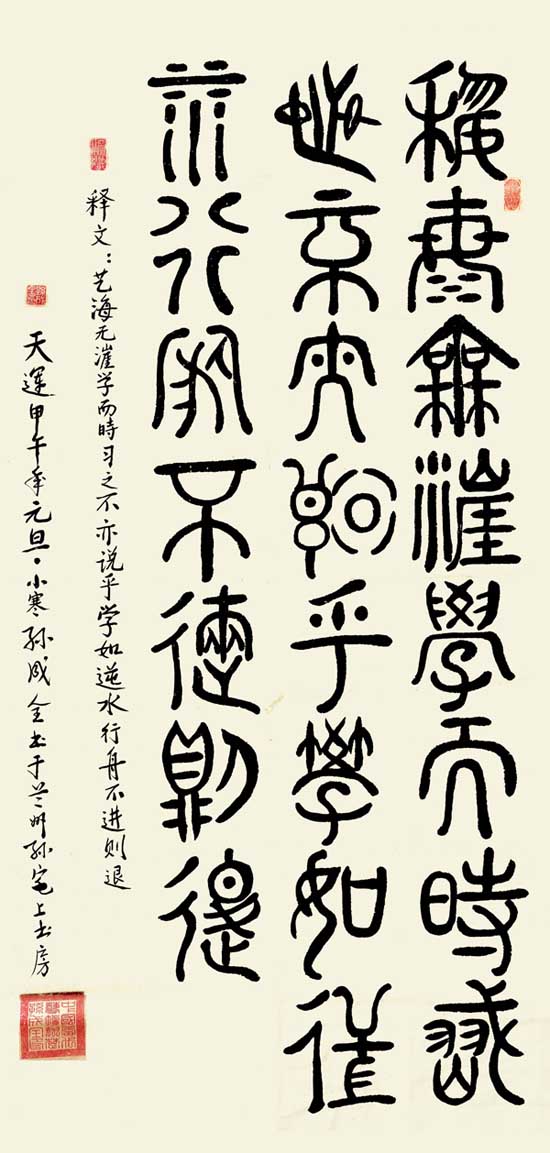 藝海無漄學而時習
之不亦說乎學如逆
水行舟不進則退
释文：艺海无漄学而時习之不亦说乎学如逆水行舟不进则退
天運甲午年元旦·小寒孙成全书于兰州孙宅上书房